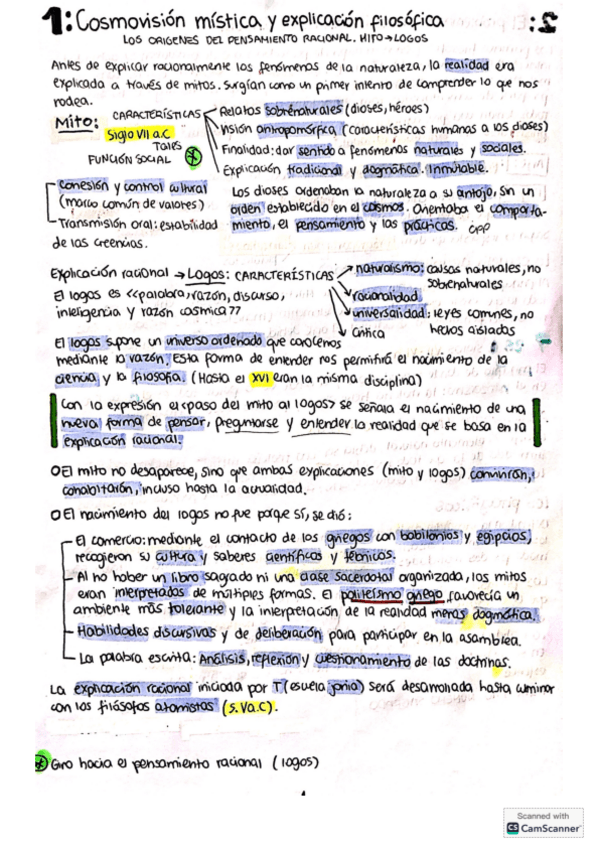 1: Cosmovisión mística y explicación filosófica
LOS ORIGENES DEL PENSAMIENTO RACIONAL. MITO→LOGOS
Antes de explicar racionalmente los fenómenos de la naturaleza, la realidad era
explicada a través de mitos. Surgían como un primer intento de comprender lo que nos
rodea.
Mito: CARACTERÍSTICAS
Relatos sobrenaturales (dioses, héroes)
Visión antropomórfica (características humanas a los dioses)
Finalidad: dar sentido a fenómenos naturales y sociales.
Explicación tradicional y dogmática. Inmutable.
Siglo VII a.C
Tales
FUNCIÓN SOCIAL
Conesión y control cultural
(marco común de valores)
Transmisión oral: estabilidad
de las creencias.
Los dioses ordenaban la naturaleza a su antojo, sin un
orden establecido en el cosmos. Orientaba el comporta-
miento, el pensamiento y las prácticas. CPP
Explicación racional → Logos: CARACTERÍSTICAS
naturalismo: causas naturales, no
sobrenaturales
racionalidad
universalidad: leyes comunes, no
hechos aislados
Crítica
El logos es <<palabra, razón, discurso,
inteligencia y razón cósmica??
El logos supone un universo ordenado que conocemos
mediante la razón. Esta forma de entender nos permitirá el nacimiento de la
ciencia y la filosofía. (Hasta el XVI eran la misma disciplina)
Con la expresión el <paso del mito al logos> se señala el nacimiento de una
nueva forma de pensar, preguntarse y entender la realidad que se basa en la
explicación racional.
O El mito no desaparece, sino que ambas explicaciones (mito y logos) convivirán,
cohabitarán, incluso hasta la actualidad.
O El nacimiento del logos no fue porque sí, se dió:
El comercio: mediante el contacto de los griegos con babilonios y egipcios,
recogieron su cultura y saberes científicos y técnicos.
Al no haber un libro sagrado ni una clase sacerdotal organizada, los mitos
eran interpretados de múltiples formas. El politeísmo griego favorecía un
ambiente más tolerante y la interpretación de la realidad menos dogmática.
Habilidades discursivas y de deliberación para participar en la asamblea.
La palabra escrita: Análisis, reflexión y cuestionamiento de las doctrinas.
La explicación racional iniciada por T (escuela jonia) será desarrollada hasta culminar
con los filósofos atomistas (s. V a.C).
* Giro hacia el pensamiento racional (logos)
Scanned with
CS CamScanner